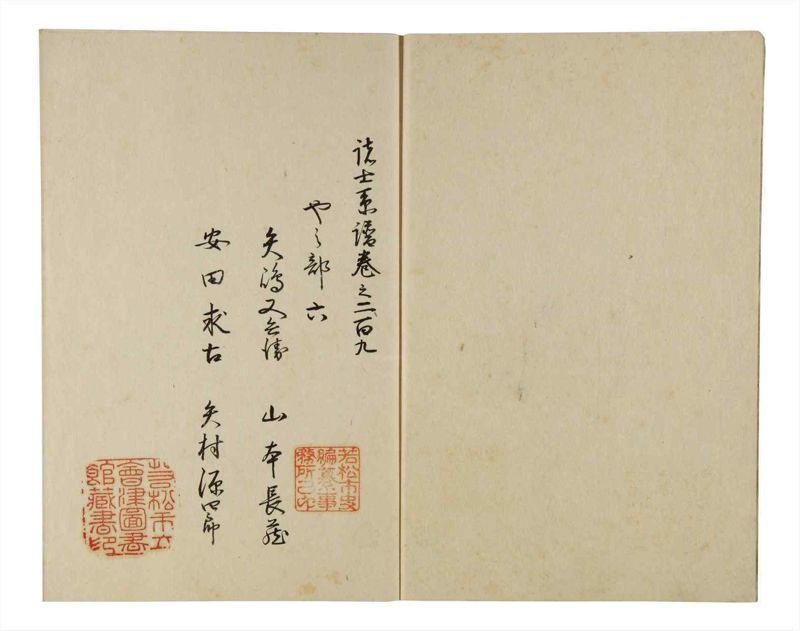 諸士系譜巻之二百九
や之部 六
矢嶋又兵衛 山本長蔵
安田求古 矢村源四郎
若松市史
編纂事
務所之印
若松市立
會津圖書
館藏書印